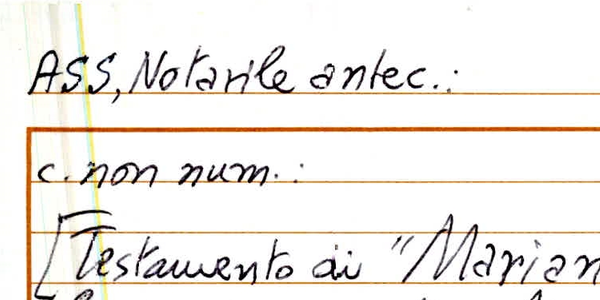 ASS, Notarile antec.:
c. non num.:
[Testamento di "Marian